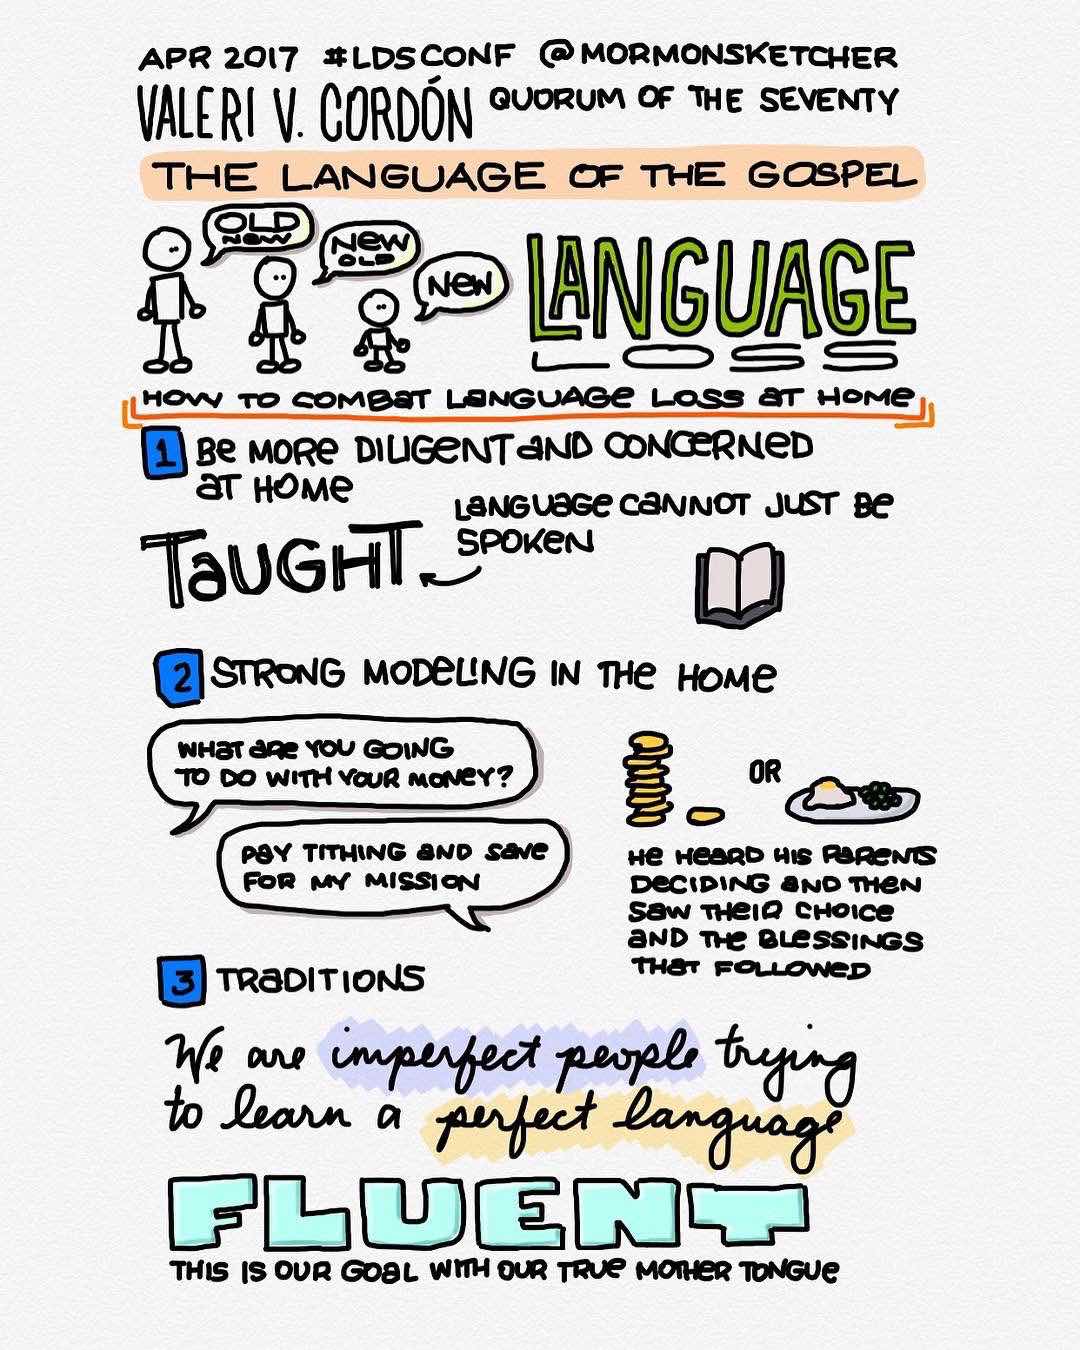 APR 2017 #LDSCONF @MORMONSKETCHER
VALERI V. CORDÓN QUORUM OF THE SEVENTY
THE LANGUAGE OF THE GOSPEL
OLD
NEW
NEW
OLD
NEW
LANGUAGE
HOW TO COMBAT LANGUAGE LOSS AT HOME
1 BE MORE DILIGENT AND CONCERNED
AT HOME
LANGUAGE CANNOT JUST BE
SPOKEN
TAUGHT
2 STRONG MODELING IN THE HOME
WHAT ARE YOU GOING
TO DO WITH YOUR MONEY?
PAY TITHING AND SAVE
FOR MY MISSION
OR
HE HEARD HIS PARENTS
DECIDING AND THEN
SAW THEIR CHOICE
AND THE BLESSINGS
THAT FOLLOWED
3 TRADITIONS
We are imperfect people trying
to learn a perfect language
FLUENT
THIS IS OUR GOAL WITH OUR TRUE MOTHER TONGUE